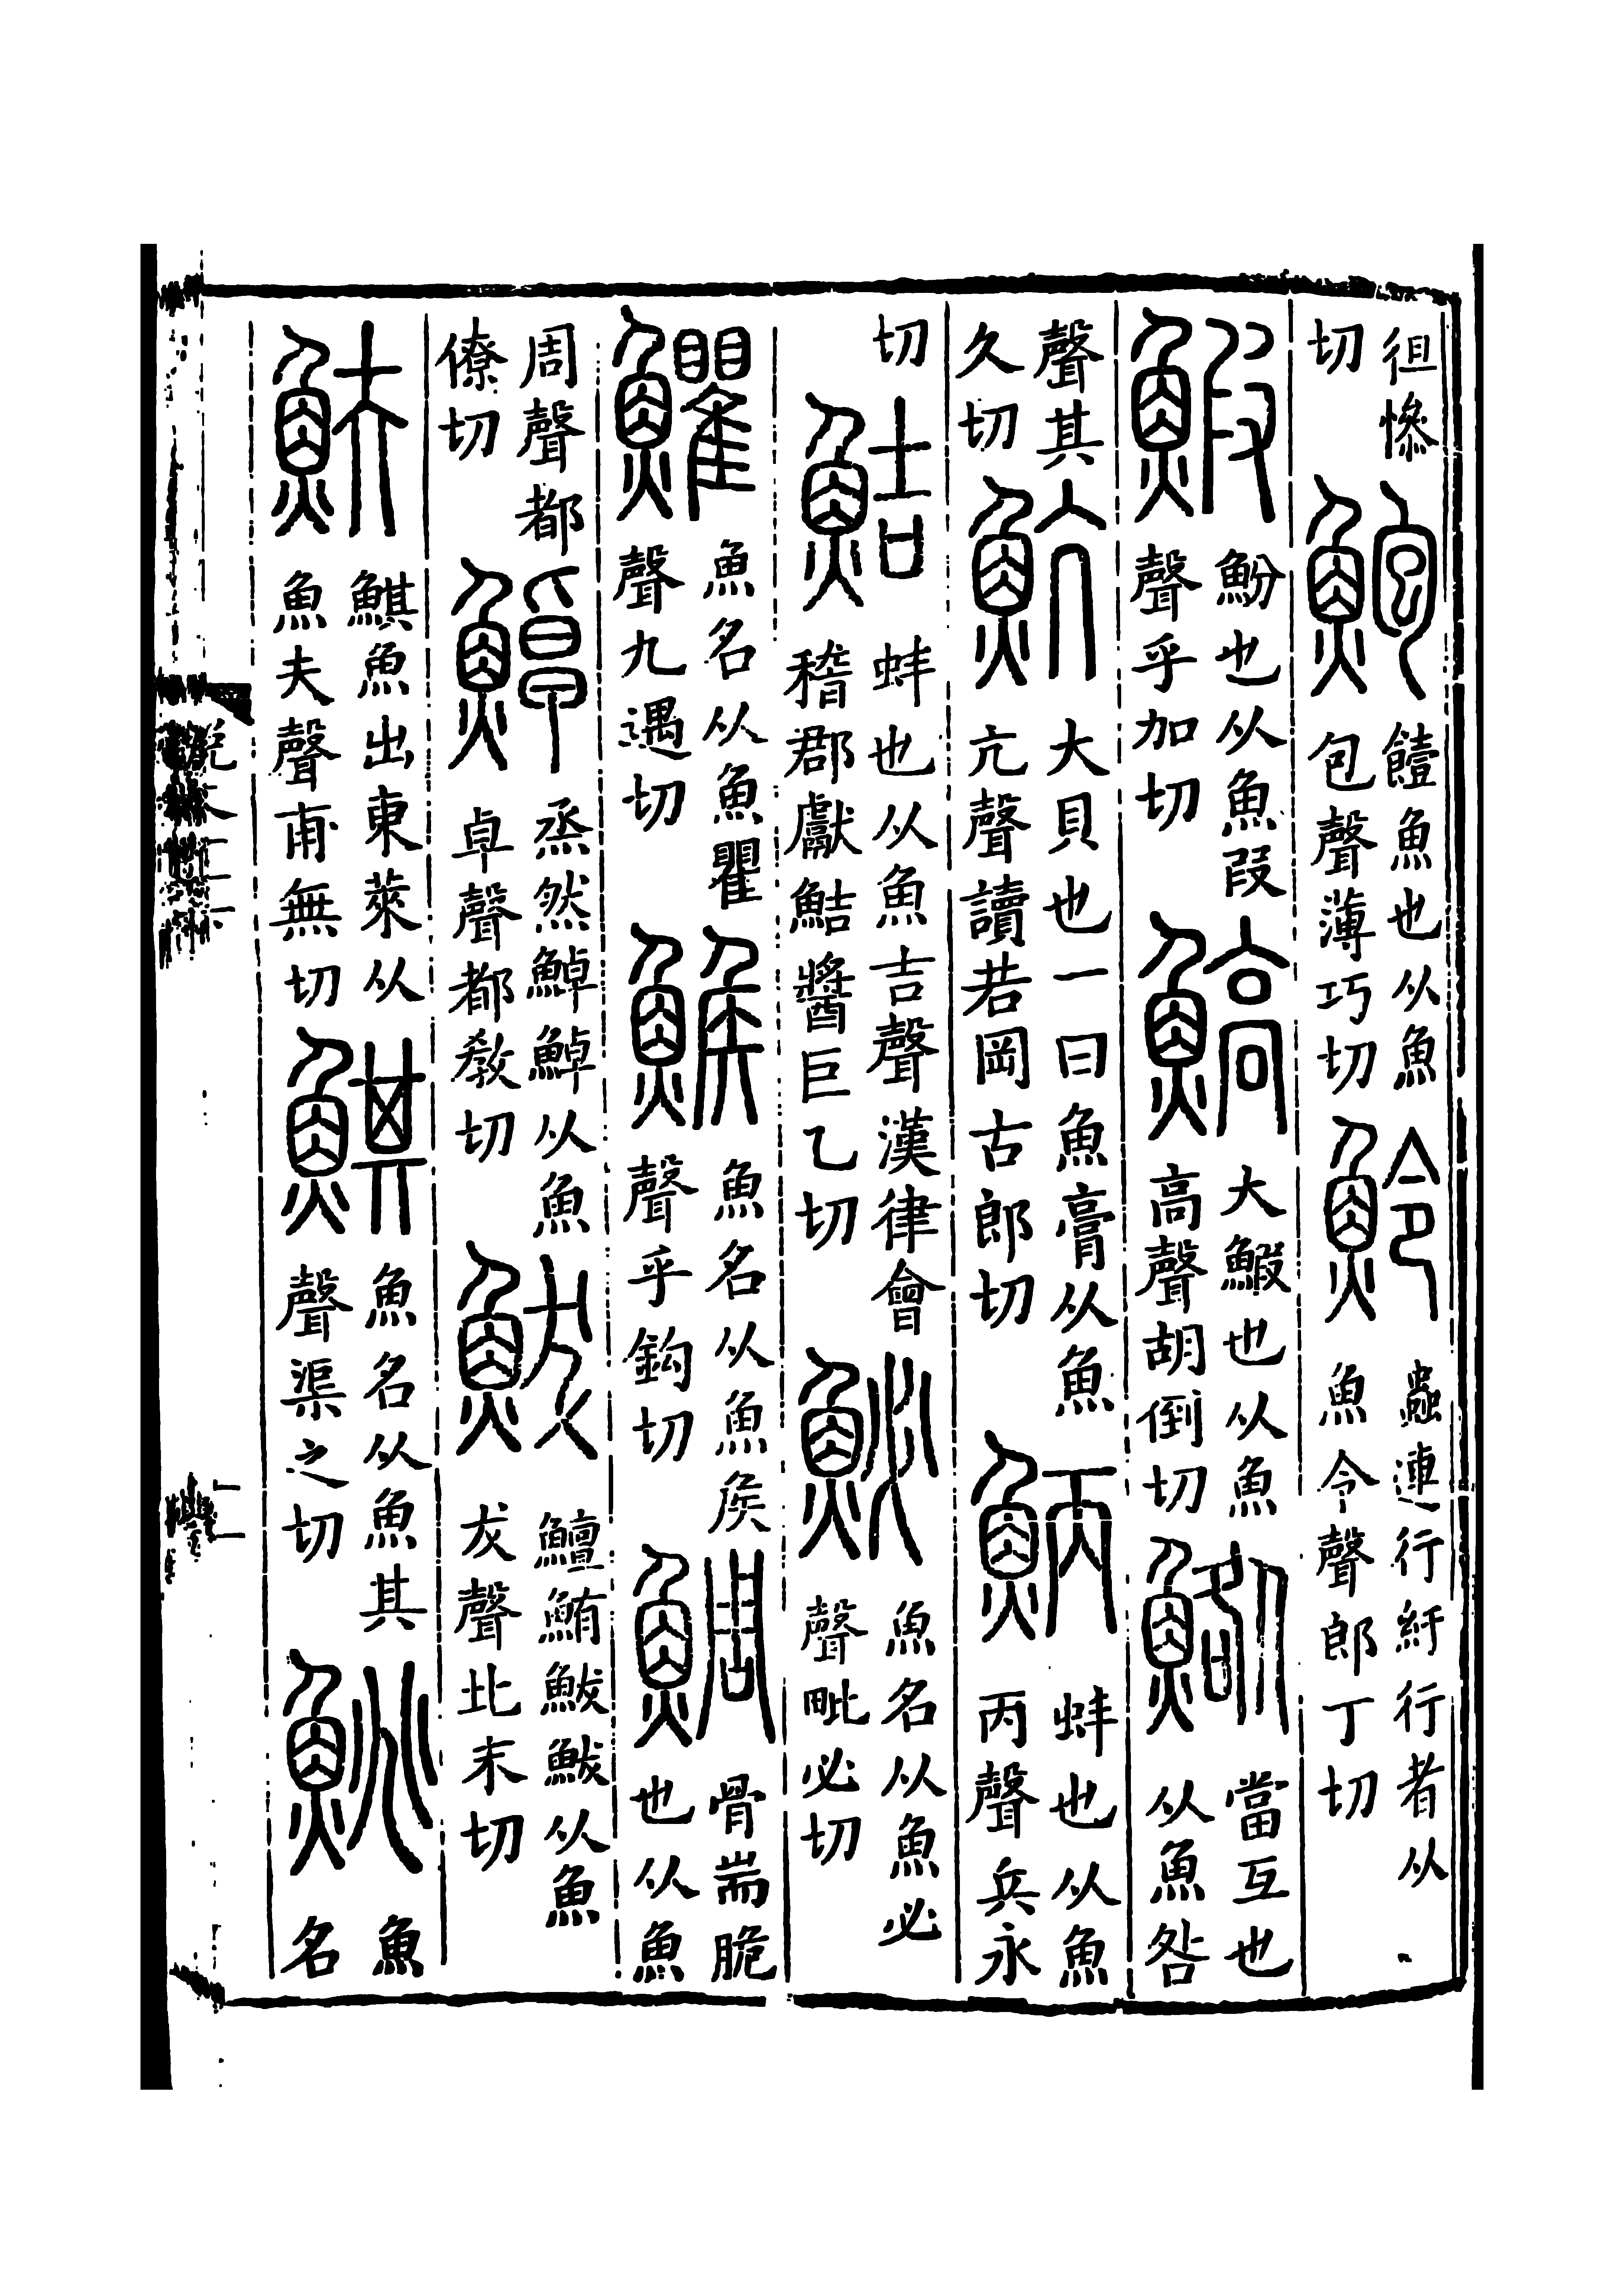 徂慘切鮑饐魚也从魚包聲薄巧切魿蟲連行紆行者从魚令聲郎丁切
鰕魵也从魚叚聲乎加切鰝大鰕也从魚高聲胡倒切鯦當互也从魚咎
聲其久切魧大貝也一曰魚膏从魚亢聲讀若岡古郎切鮩蚌也从魚丙聲兵永
切鮚蚌也从魚吉聲漢律會稽郡獻鮚醬巨乙切鮅魚名从魚必聲毗必切
䲘魚名从魚瞿聲九遇切鯸魚名从魚矦聲乎鉤切鯛骨耑脆也从魚
周聲都僚切䱟烝然䱟䱟从魚卓聲都教切鮁鱣鮪鮁鮁从魚犮聲北末切
䱐鯕魚出東萊从魚夫聲甫無切鯕魚名从魚其聲渠之切鮡魚名